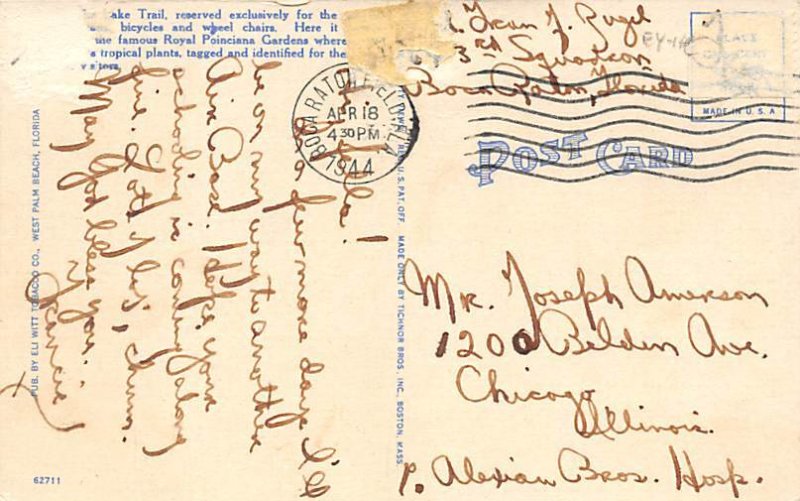 ake Trail, reserved exclusively for the
bicycles and wheel chairs. Here it
famous Royal Poinciana Gardens where
s tropical plants, tagged and identified for the
itors.
PUB. BY ELI WITT TOBACCO CO., WEST PALM BEACH, FLORIDA
62711
a few more days I'll
be on my way to another
Air Base. Hope your
schooling is coming along
fine. Lot's of
May God bless you.
Francis
REG. U.S. PAT. OFF. MADE ONLY BY TICHNOR BROS. INC., BOSTON, MASS.
BOCA RATON FIELD, FLA.
APR 18
4 30 PM
1944
3rd Squadron
Boca Raton, Florida
PLACE
MADE IN U.S.A
POST CARD
Mr. Joseph Amerson
1200 Belden Ave.
Chicago
Illinois.
Alexian Bros. Hosp.